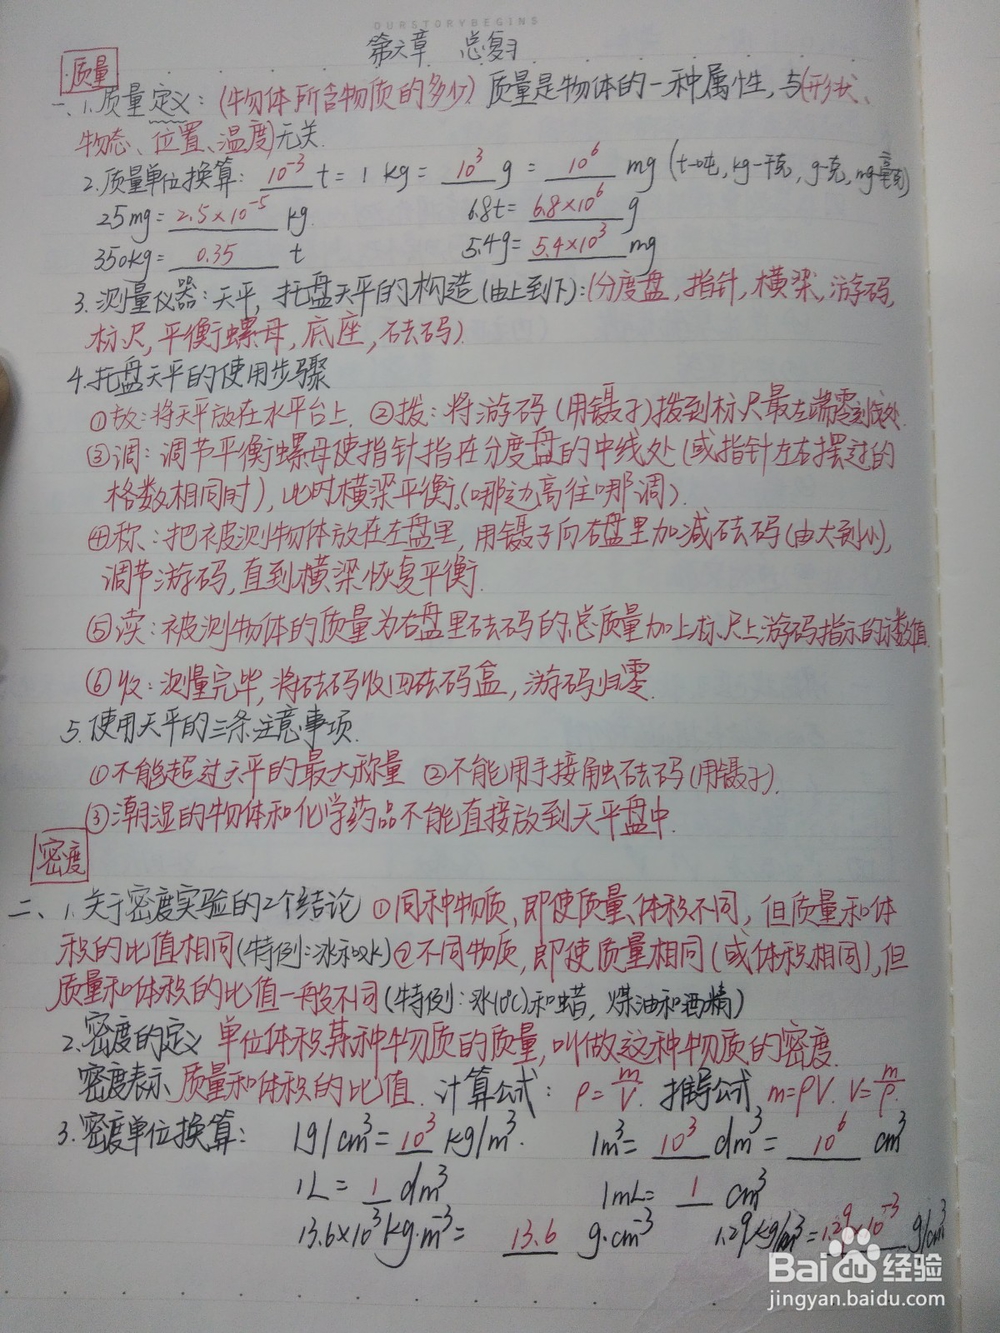 OURSTORYBEGINS
第六章 总复习
质量
一、1.质量定义：(物体所含物质的多少) 质量是物体的一种属性，与(形状、
物态、位置、温度)无关.
2.质量单位换算：10⁻³ t = 1 kg = 10³ g = 10⁶ mg (t-吨, kg-千克, g-克, mg-毫克)
25mg = 2.5×10⁻⁵ kg. 6.8t = 6.8×10⁶ g
350kg = 0.35 t 5.4g = 5.4×10³ mg
3.测量仪器：天平，托盘天平的构造(由上到下)：(分度盘，指针，横梁，游码，
标尺，平衡螺母，底座，砝码)
4.托盘天平的使用步骤
①放：将天平放在水平台上. ②拨：将游码(用镊子)拨到标尺最左端零刻度处.
③调：调节平衡螺母使指针指在分度盘的中线处(或指针左右摆过的
格数相同时)，此时横梁平衡.(哪边高往哪调).
④称：把被测物体放在左盘里，用镊子向右盘里加减砝码(由大到小)，
调节游码，直到横梁恢复平衡.
⑤读：被测物体的质量为右盘里砝码的总质量加上标尺上游码指示的示数值.
⑥收：测量完毕，将砝码收回砝码盒，游码归零.
5.使用天平的三条注意事项.
①不能超过天平的最大称量 ②不能用手接触砝码(用镊子).
③潮湿的物体和化学药品不能直接放到天平盘中.
密度
二、1.关于密度实验的2个结论 ①同种物质，即使质量、体积不同，但质量和体
积的比值相同(特例：冰和水)②不同物质，即使质量相同(或体积相同)，但
质量和体积的比值一般不同(特例：冰(0℃)和蜡，煤油和酒精)
2.密度的定义 单位体积某种物质的质量，叫做这种物质的密度.
密度表示 质量和体积的比值. 计算公式：ρ=m/V. 推导公式 m=ρV. V=m/ρ.
3.密度单位换算： 1g/cm³ = 10³ kg/m³. 1m³ = 10³ dm³ = 10⁶ cm³
1L = 1 dm³ 1mL = 1 cm³
13.6×10³kg·m⁻³ = 13.6 g·cm⁻³ 1.29kg/m³ = 1.29×10⁻³ g/cm³
Baidu经验
jingyan.baidu.com